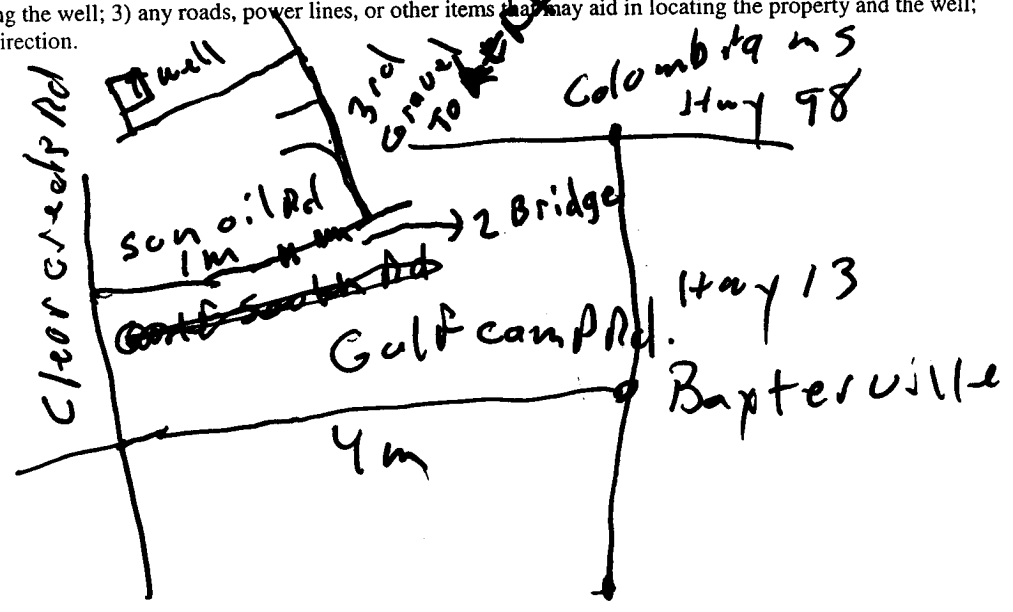 ng the well; 3) any roads, power lines, or other items that may aid in locating the property and the well;
irection.
well
3 rd
Gravel
TO
Colombia ms
Hwy 98
Clear creek Rd
sun oil Rd
1 m
2 Bridge
Hwy 13
Gulf camp Rd.
Baxterville
4 m